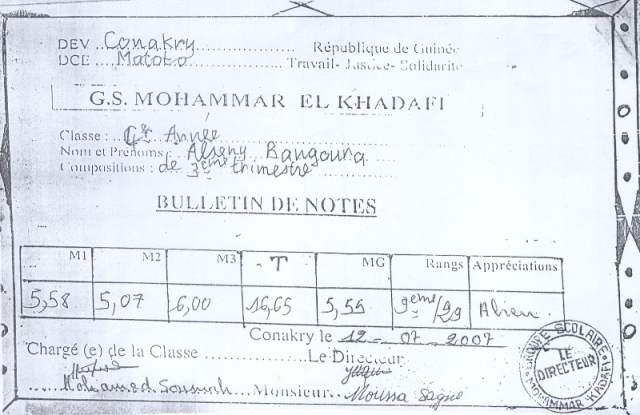 DEV ..Conakry.......... République de Guinée
DCE ...Matoto.......... Travail- Justice- Solidarité
G.S. MOHAMMAR EL KHADAFI
Classe : Année
Nom et Prénoms : Alseny Bangoura
Compositions : de 3ème trimestre
BULLETIN DE NOTES
M1 M2 M3 T MG Rangs Appréciations
5,58 5,07 6,00 16,65 5,55 9eme/29 Abien
Conakry le 12-07-2007
Chargé (e) de la Classe .................. Le Directeur
Mohamed Soumah Monsieur Moussa
GROUPE SCOLAIRE
LE DIRECTEUR
MOHAMMAR KHADAFI